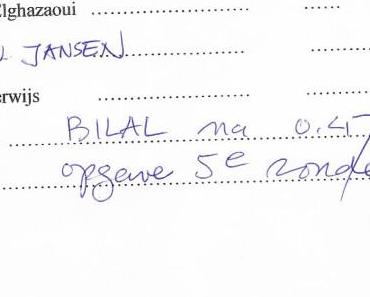 Elghazaoui ..............................
L JANSEN ..............................
erwijs ..............................
BILAL na 0.45
opgave 5e ronde